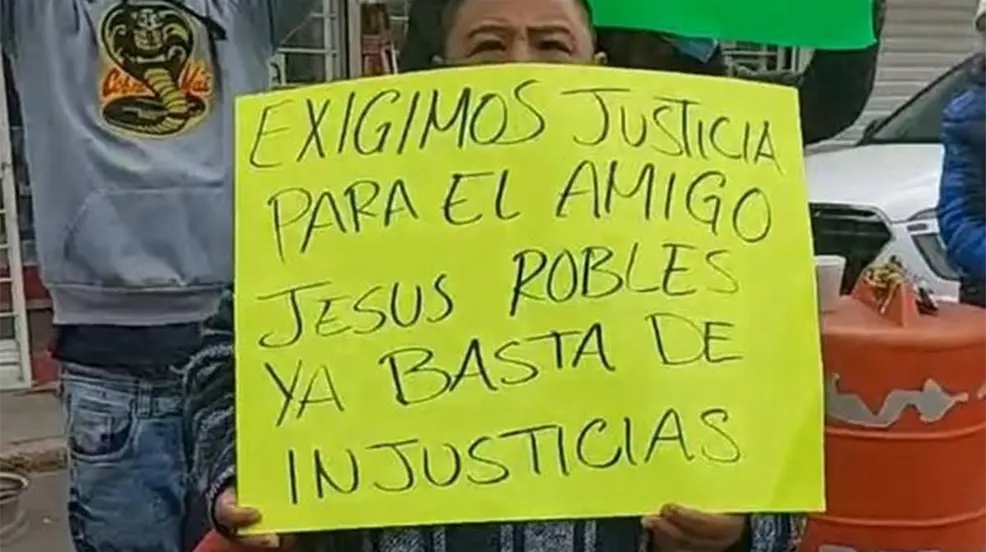 Cobra Kai
EXIGIMOS JUSTICIA
PARA EL AMIGO
JESUS ROBLES
YA BASTA DE
INJUSTICIAS